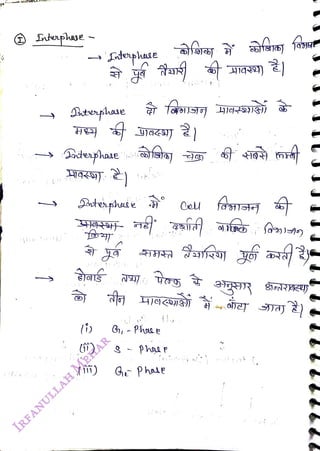 ① Interphase -
→ Interphase कोशिका में कोशिका विभाजन
से पूर्व तैयारी की प्रावस्था है।
→ Interphase दो विभाजन प्रावस्थाओं के
मध्य की प्रावस्था है।
→ Interphase कोशिका चक्र की सबसे लम्बी
प्रावस्था है।
→ Interphase में Cell विभाजन की
प्रावस्था नहीं दर्शाती बल्कि विभाजन
क्रिया
से पूर्व समस्त तैयारिया पूर्ण करती है।
→ होवार्ड तथा पेल्क के अनुसार अन्तरावस्था
को तीन प्रावस्थाओं में बाँटा जाता है।
(i) G₁ - Phase
(ii) S - Phase
(iii) G₂ - Phase
IRFANULLAH MEHAR